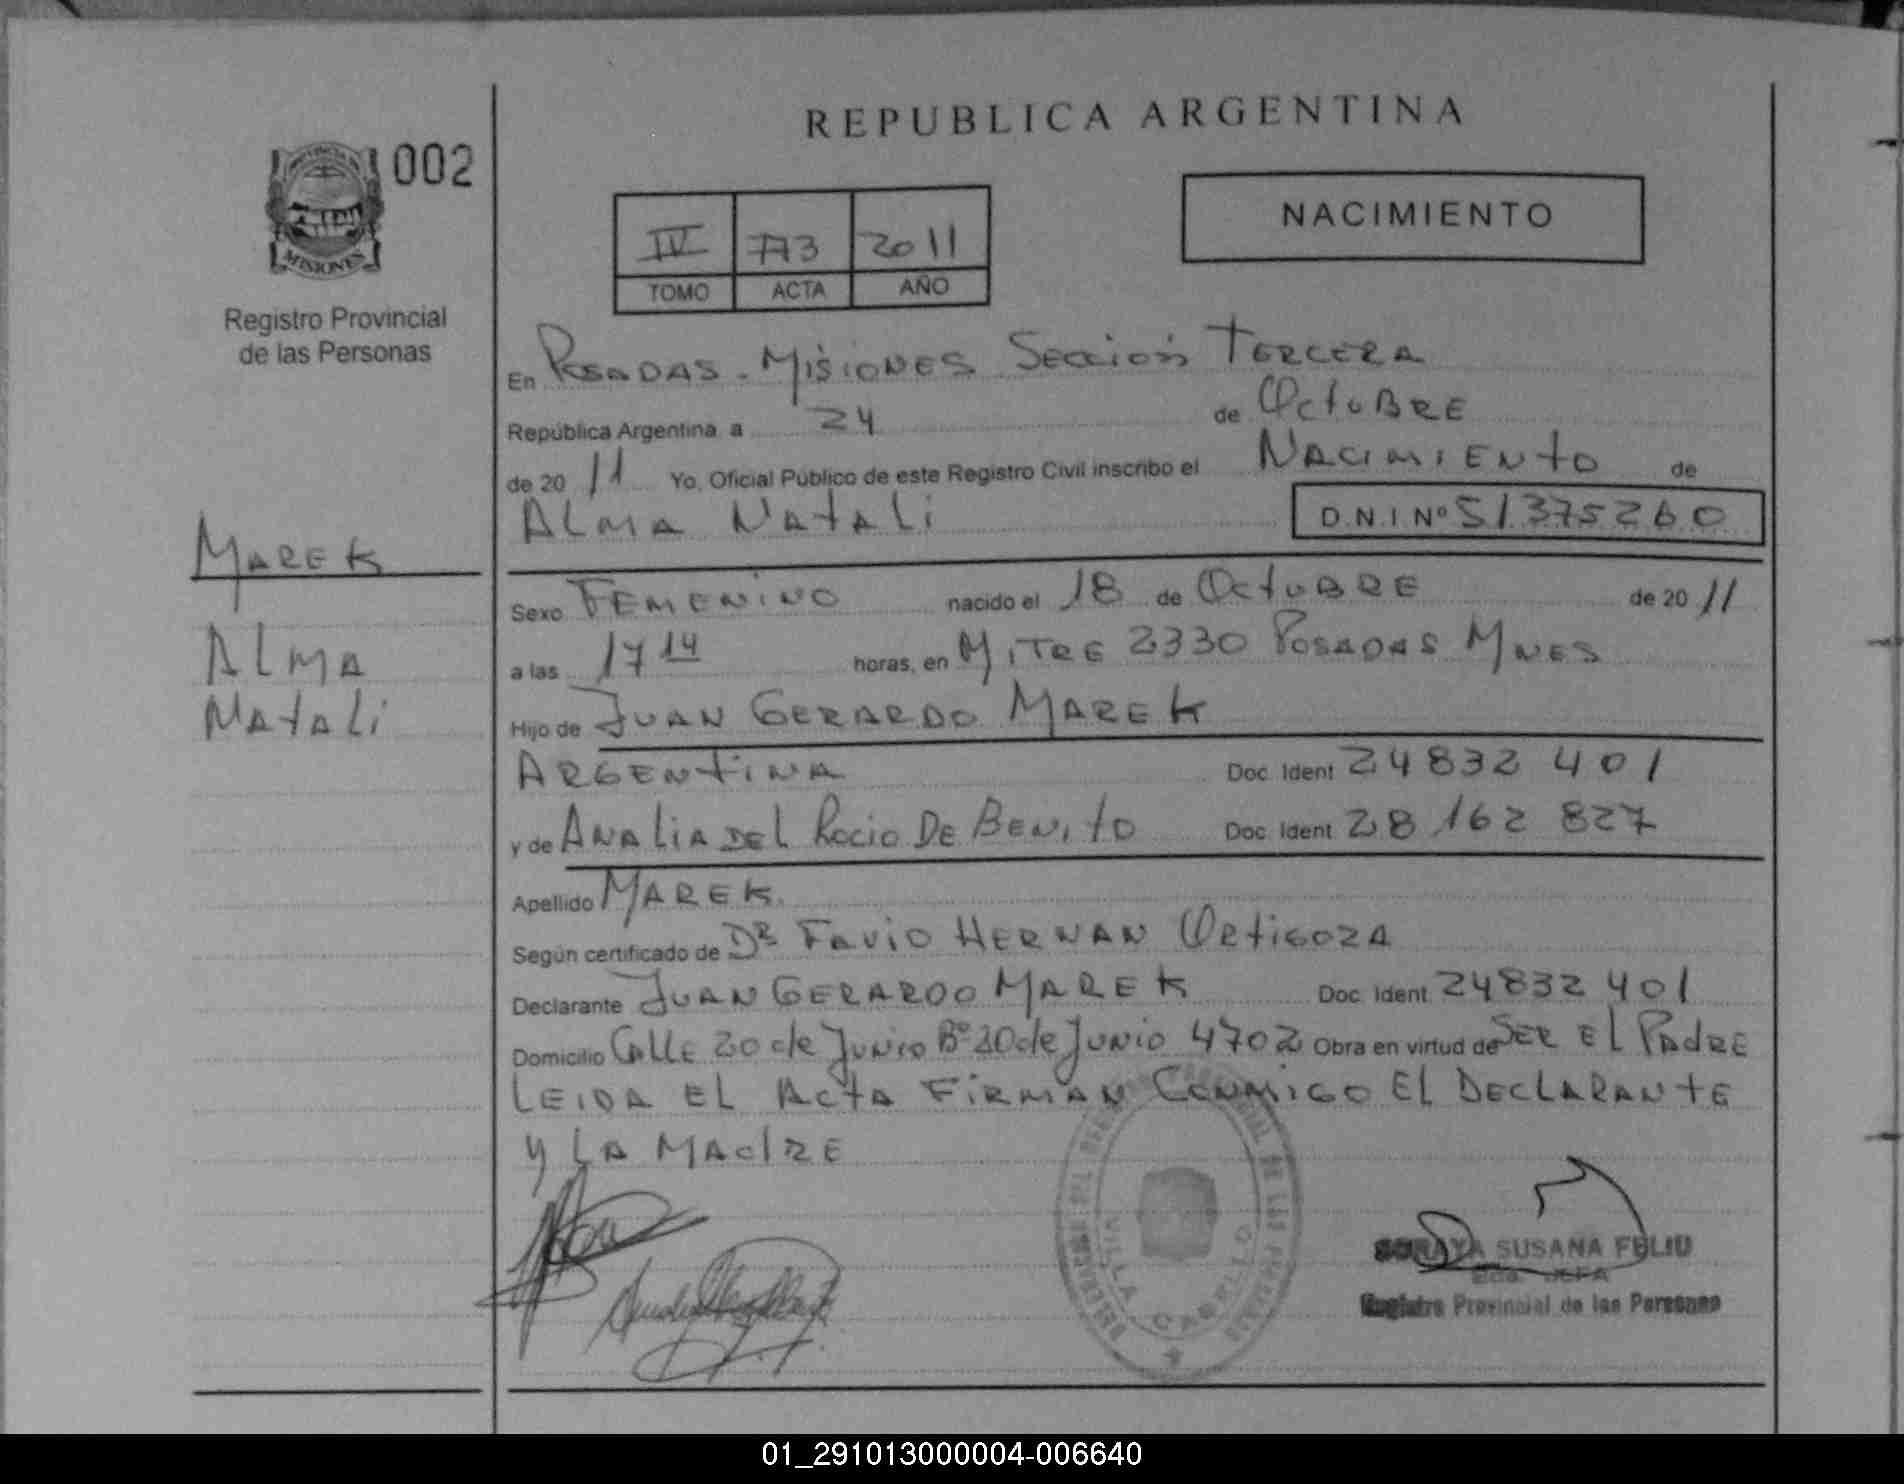 REPUBLICA ARGENTINA
PROVINCIA DE
MISIONES
002
Registro Provincial
de las Personas
NACIMIENTO
IV 773 2011
TOMO ACTA AÑO
En POSADAS - MISIONES SECCIÓN TERCERA
República Argentina a 24 de OCTUBRE
de 2011 Yo, Oficial Público de este Registro Civil inscribo el NACIMIENTO de
ALMA NATALI D.N.I Nº 51375260
MAREK
ALMA
NATALI
Sexo FEMENINO nacido el 18 de OCTUBRE de 2011
a las 17 14 horas, en MITRE 2330 POSADAS MNES
Hijo de JUAN GERARDO MAREK
ARGENTINA Doc. Ident 24832 401
y de ANALIA DEL ROCIO DE BENITO Doc. Ident 28 162 827
Apellido MAREK
Según certificado de DR FAVIO HERNAN ORTIGOZA
Declarante JUAN GERARDO MAREK Doc. Ident 24832 401
Domicilio CALLE 20 de JUNIO Bº 20 de JUNIO 4702 Obra en virtud de SER EL PADRE
LEIDA EL ACTA FIRMAN CONMIGO EL DECLARANTE
Y LA MADRE
VILLA CABELLO
SORAYA SUSANA FELIU
JEFA
Registro Provincial de las Personas
01_291013000004-006640